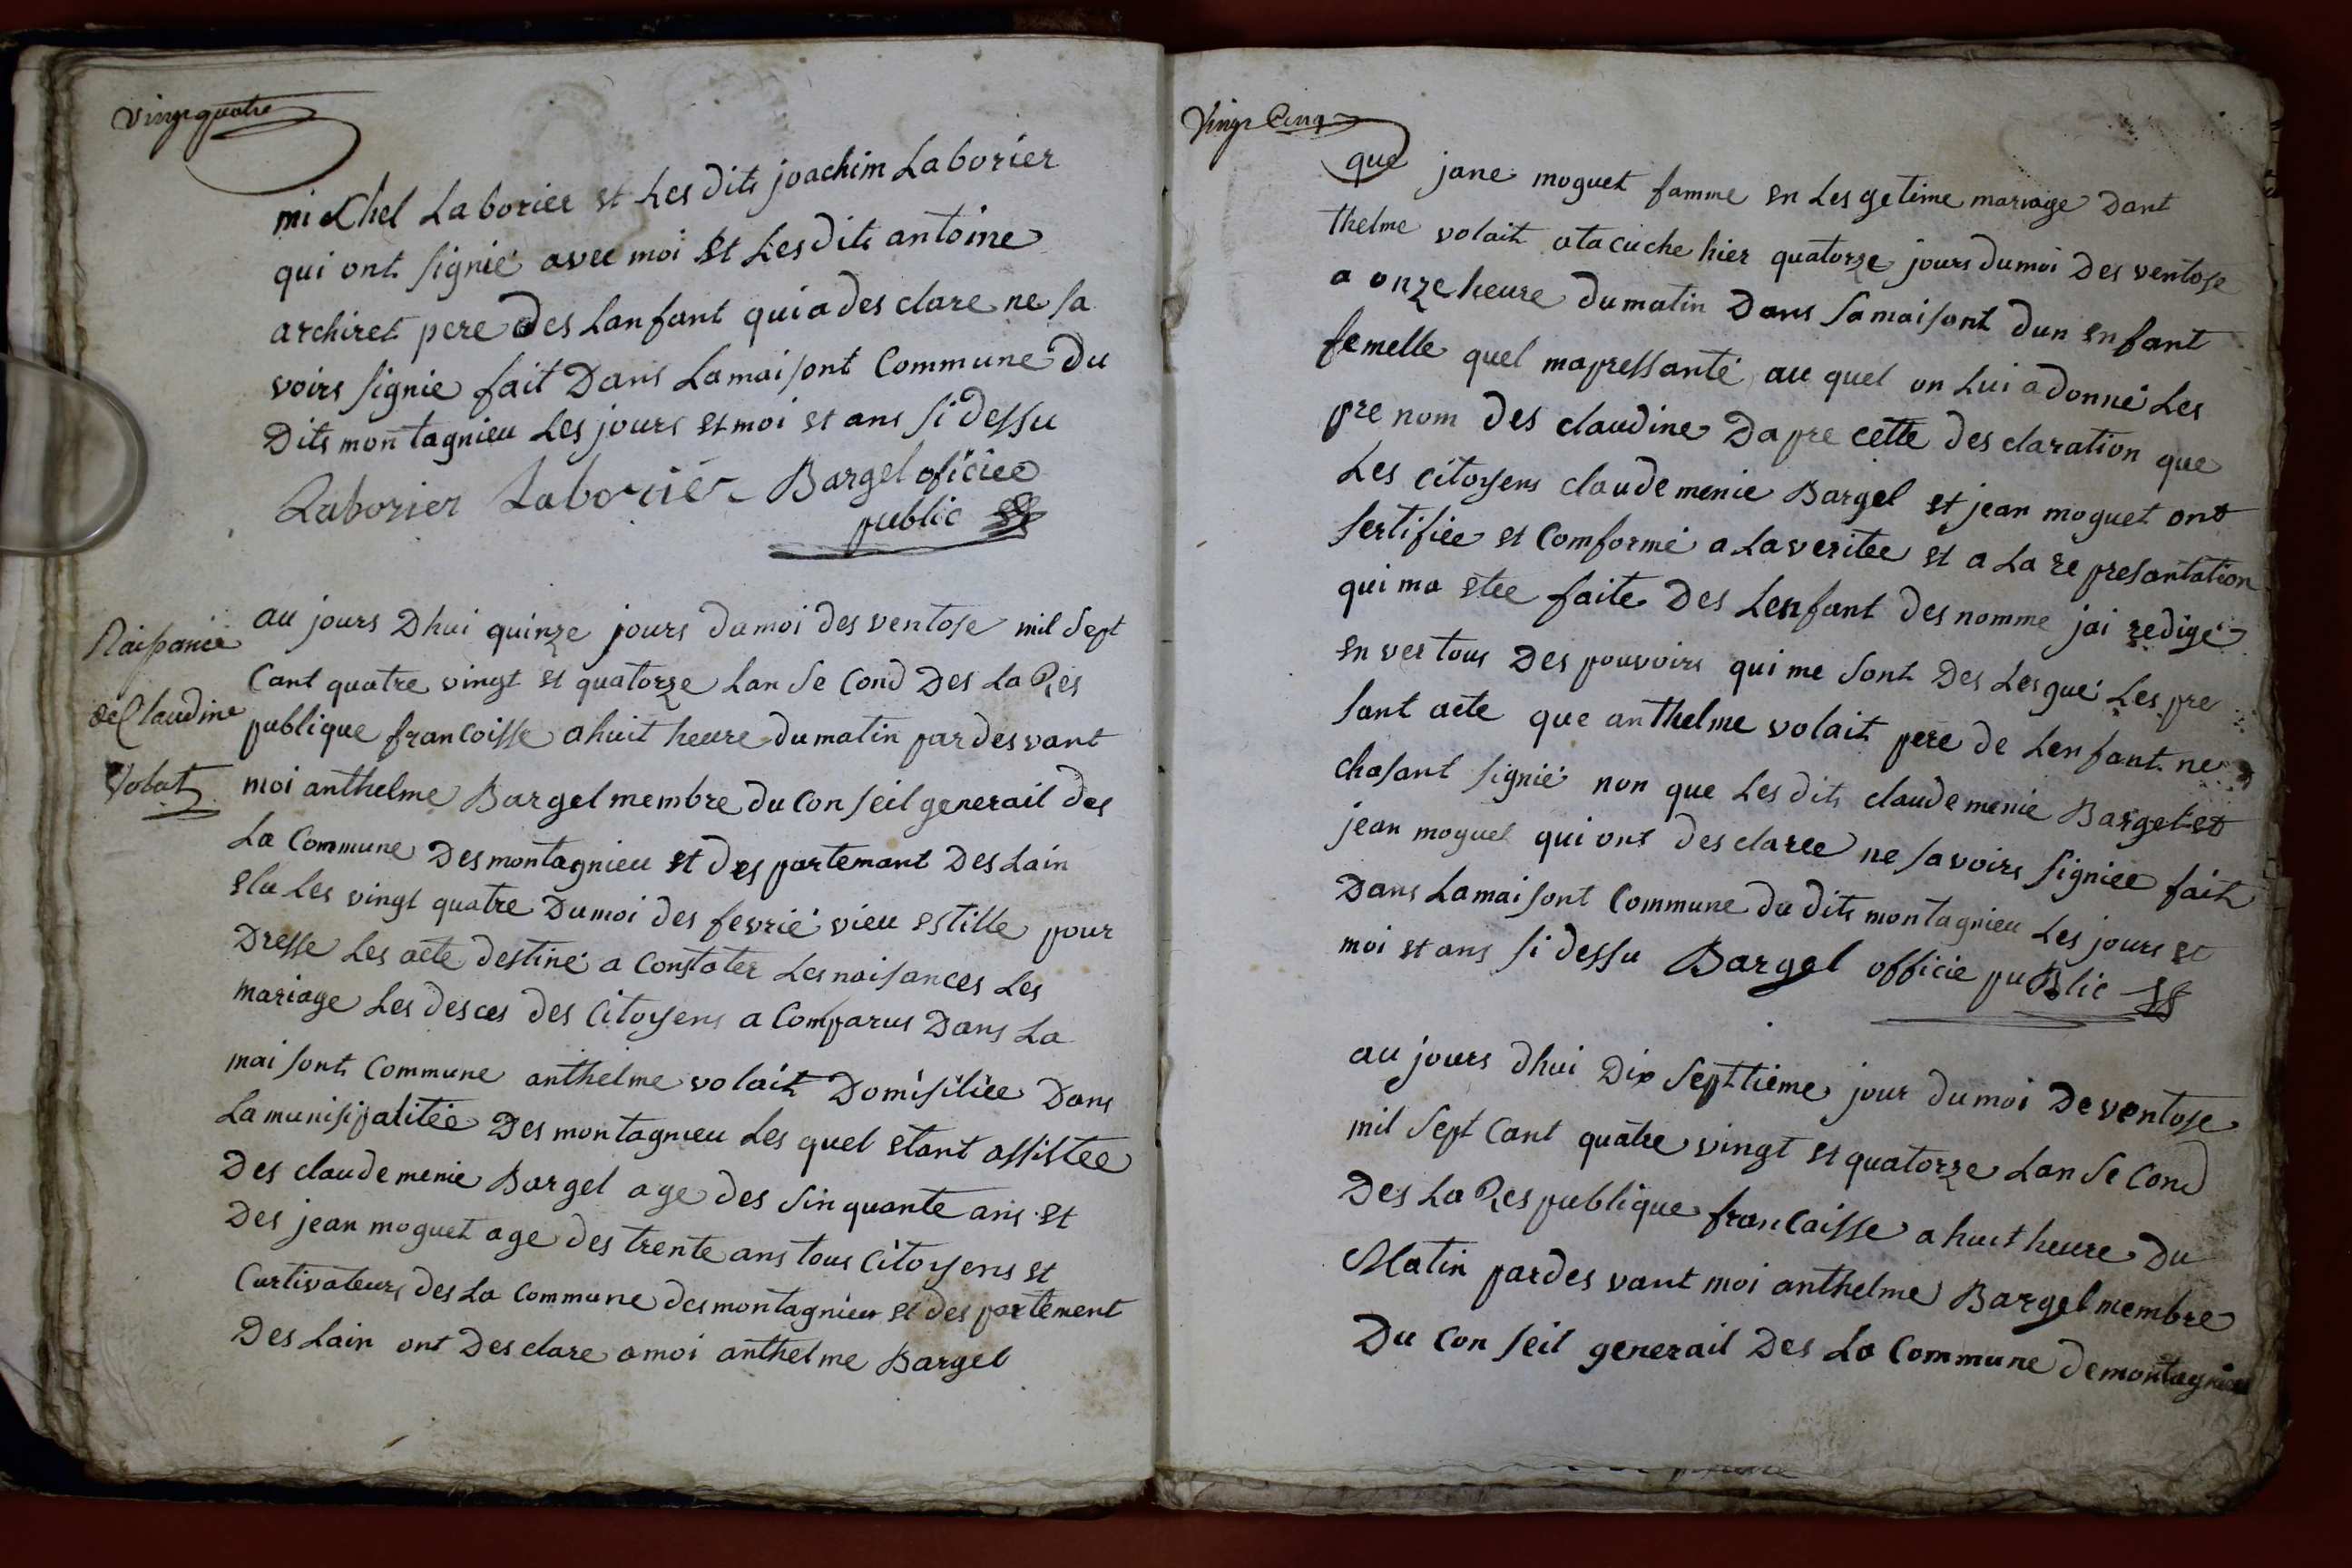 vingt quatre
mi Chel Laborier et Les dits joachim Laborier
qui ont signié avec moi et Les dits antoine
archiret pere des Lanfant qui a des clare ne sa
voirs signie fait Dans La maisont Commune du
Dits montagnieu Les jours et moi et ans si dessu
Laborier Laborier Bargel oficiee
public
Naissance
de Claudine
Volat
au jours Dhui quinze jours du moi des ventose mil sept
Cant quatre vingt et quatorze Lan se Cond Des La Res
publique francoisse a huit heure du matin par des vant
moi anthelme Bargel membre du Con seil generail des
La Commune Des montagnieu et des partemant Des Lain
elu Les vingt quatre Du moi des fevrié vieu estille pour
Dresse Les acte destiné a Constater Les naisances Les
mariage Les desces des Citoyens a Comparus Dans La
mai sont Commune anthelme volait Domisiliee Dans
La munisipalitée Des montagnieu Les quel etant assistee
Des claude menie Bargel age des sinquante ans et
Des jean moguet age des trente ans tous Citoyens et
Curtivateurs des La Commune des montagnieu et des partement
Des Lain ont Des clare a moi anthelme Bargel
vingt Cinq
que jane moguet famme en Les getime mariage Dant
thelme volait a tacuche hier quatorze jours du moi Des ventose
a onze heure du matin Dans sa maisont dun enfant
femelle quel ma pressanté au quel on Lui a donné Les
pre nom des claudine Da pre cette des claration que
Les Citoyens claude menie Bargel et jean moguet ont
sertifiee et Comformé a La veritee et a La re presantation
qui ma etee faite Des Lenfant des nomme jai redigé
en ver tous Des pouvoirs qui me sont Des Les gué Les pre
sant acte que anthelme volait pere de Lenfant ne
chasant signié non que Les dits claude menie Bargel et
jean moguel qui ont des claree ne savoirs signiee fait
Dans La mai sont Commune du dits montagnieu Les jours et
moi et ans si dessu Bargel officie puBlic
au jours dhui Dix septtieme jour du moi De ventose
mil sept Cant quatre vingt et quatorze Lan se Cond
Des La Res publique francaisse a huit heure Du
Matin par des vant moi anthelme Bargel membre
Du Con seil generail Des La Commune de montagnieu